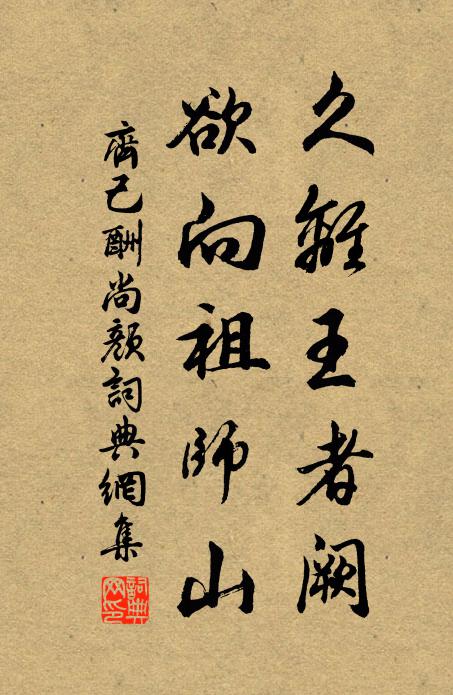 久離王者闕
欲向祖師山
齊己酬尚顏詞典網集
詞典
网印